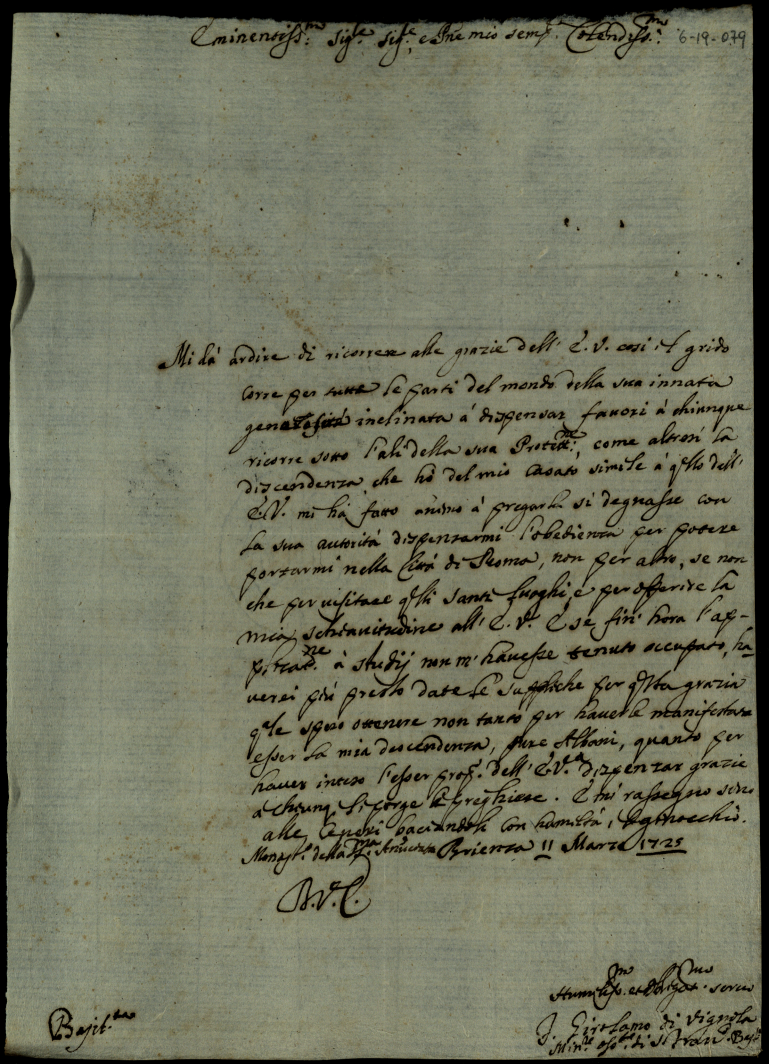 Eminentiss.mo Sig.re Sig.re, e Pne mio semp. Colendiss.mo 6-19-079
Mi dà ardire di ricorrere alle grazie dell' E. V. così il grido
corre per tutte le parti del mondo della sua innata
generosità inclinata à dispensar favori à chiunque
ricorre sotto l'ali della sua Protett.ne, come altresì la
discendenza che hò del mio Casato simile à q.llo dell'
E. V. mi hà fatto animo à pregarla si degnasse con
la sua autorità dispensarmi l'obedienza per potere
portarmi nella Città di Roma, non per altro, se non
che per visitare q.lli santi luoghi, e per offerire la
mia schiavitudine all' E. V. E se fin' hora l'ap-
plicat.ne à studij non m'havesse tenuto occupato, ha
verei più presto date le suppliche per q.sta grazia
q.le spero ottenere non tanto per haverle manifestata
esser la mia descendenza, pure Albani, quanto per
haver inteso l'esser prop.o dell' E. V.a dispensar grazie
à chiunq. li porge le preghiere. E mi rassegno sino
alle ceneri baciandoli con humiltà, i ginocchi.
Monast.o della SS.ma Annunziata Brienza 11 Marzo 1725
D. V. E.
Humiliss.mo et Obligat.mo servo
F. Girolamo di Vignola
Min.re Oss.te di S. Fran.co
Basil.ta